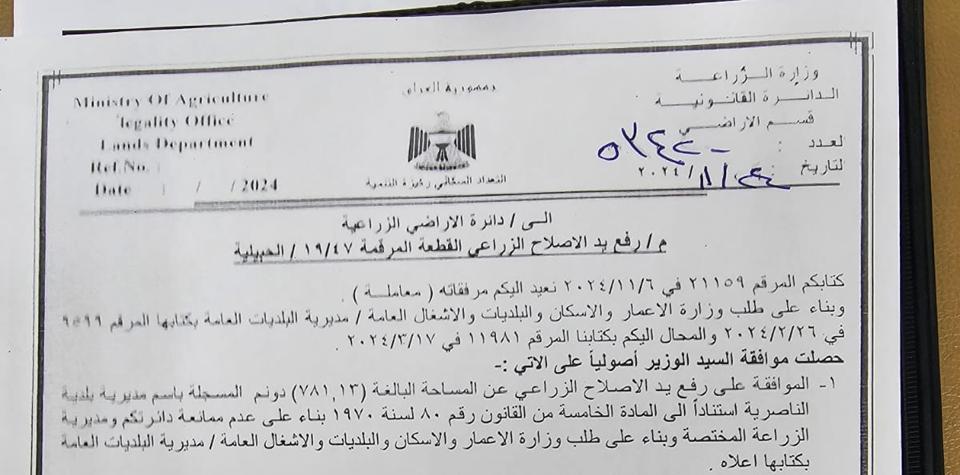 جمهورية العراق
وزارة الزراعة
الدائرة القانونية
قسم الاراضي
لعدد :
لتاريخ : ٢٤ / ١١ / ٢٠٢٤
Ministry Of Agriculture
legality Office
Lands Department
Ref.No. :
Date : / / 2024
التعداد السكاني ركيزة التنمية
الى / دائرة الاراضي الزراعية
م / رفع يد الاصلاح الزراعي القطعة المرقمة ١٩/٤٧ / الحبيلية
كتابكم المرقم ٢١١٥٩ في ٢٠٢٤/١١/٦ نعيد اليكم مرفقاته ( معاملة ) .
وبناء على طلب وزارة الاعمار والاسكان والبلديات والاشغال العامة / مديرية البلديات العامة بكتابها المرقم
في ٢٠٢٤/٢/٢٦ والمحال اليكم بكتابنا المرقم ١١٩٨١ في ٢٠٢٤/٣/١٧ .
حصلت موافقة السيد الوزير أصولياً على الاتي :-
١- الموافقة على رفع يد الاصلاح الزراعي عن المساحة البالغة (٧٨١,١٣) دونم المسجلة باسم مديرية بلدية
الناصرية استناداً الى المادة الخامسة من القانون رقم ٨٠ لسنة ١٩٧٠ بناء على عدم ممانعة دائرتكم ومديرية
الزراعة المختصة وبناء على طلب وزارة الاعمار والاسكان والبلديات والاشغال العامة / مديرية البلديات العامة
بكتابها اعلاه .